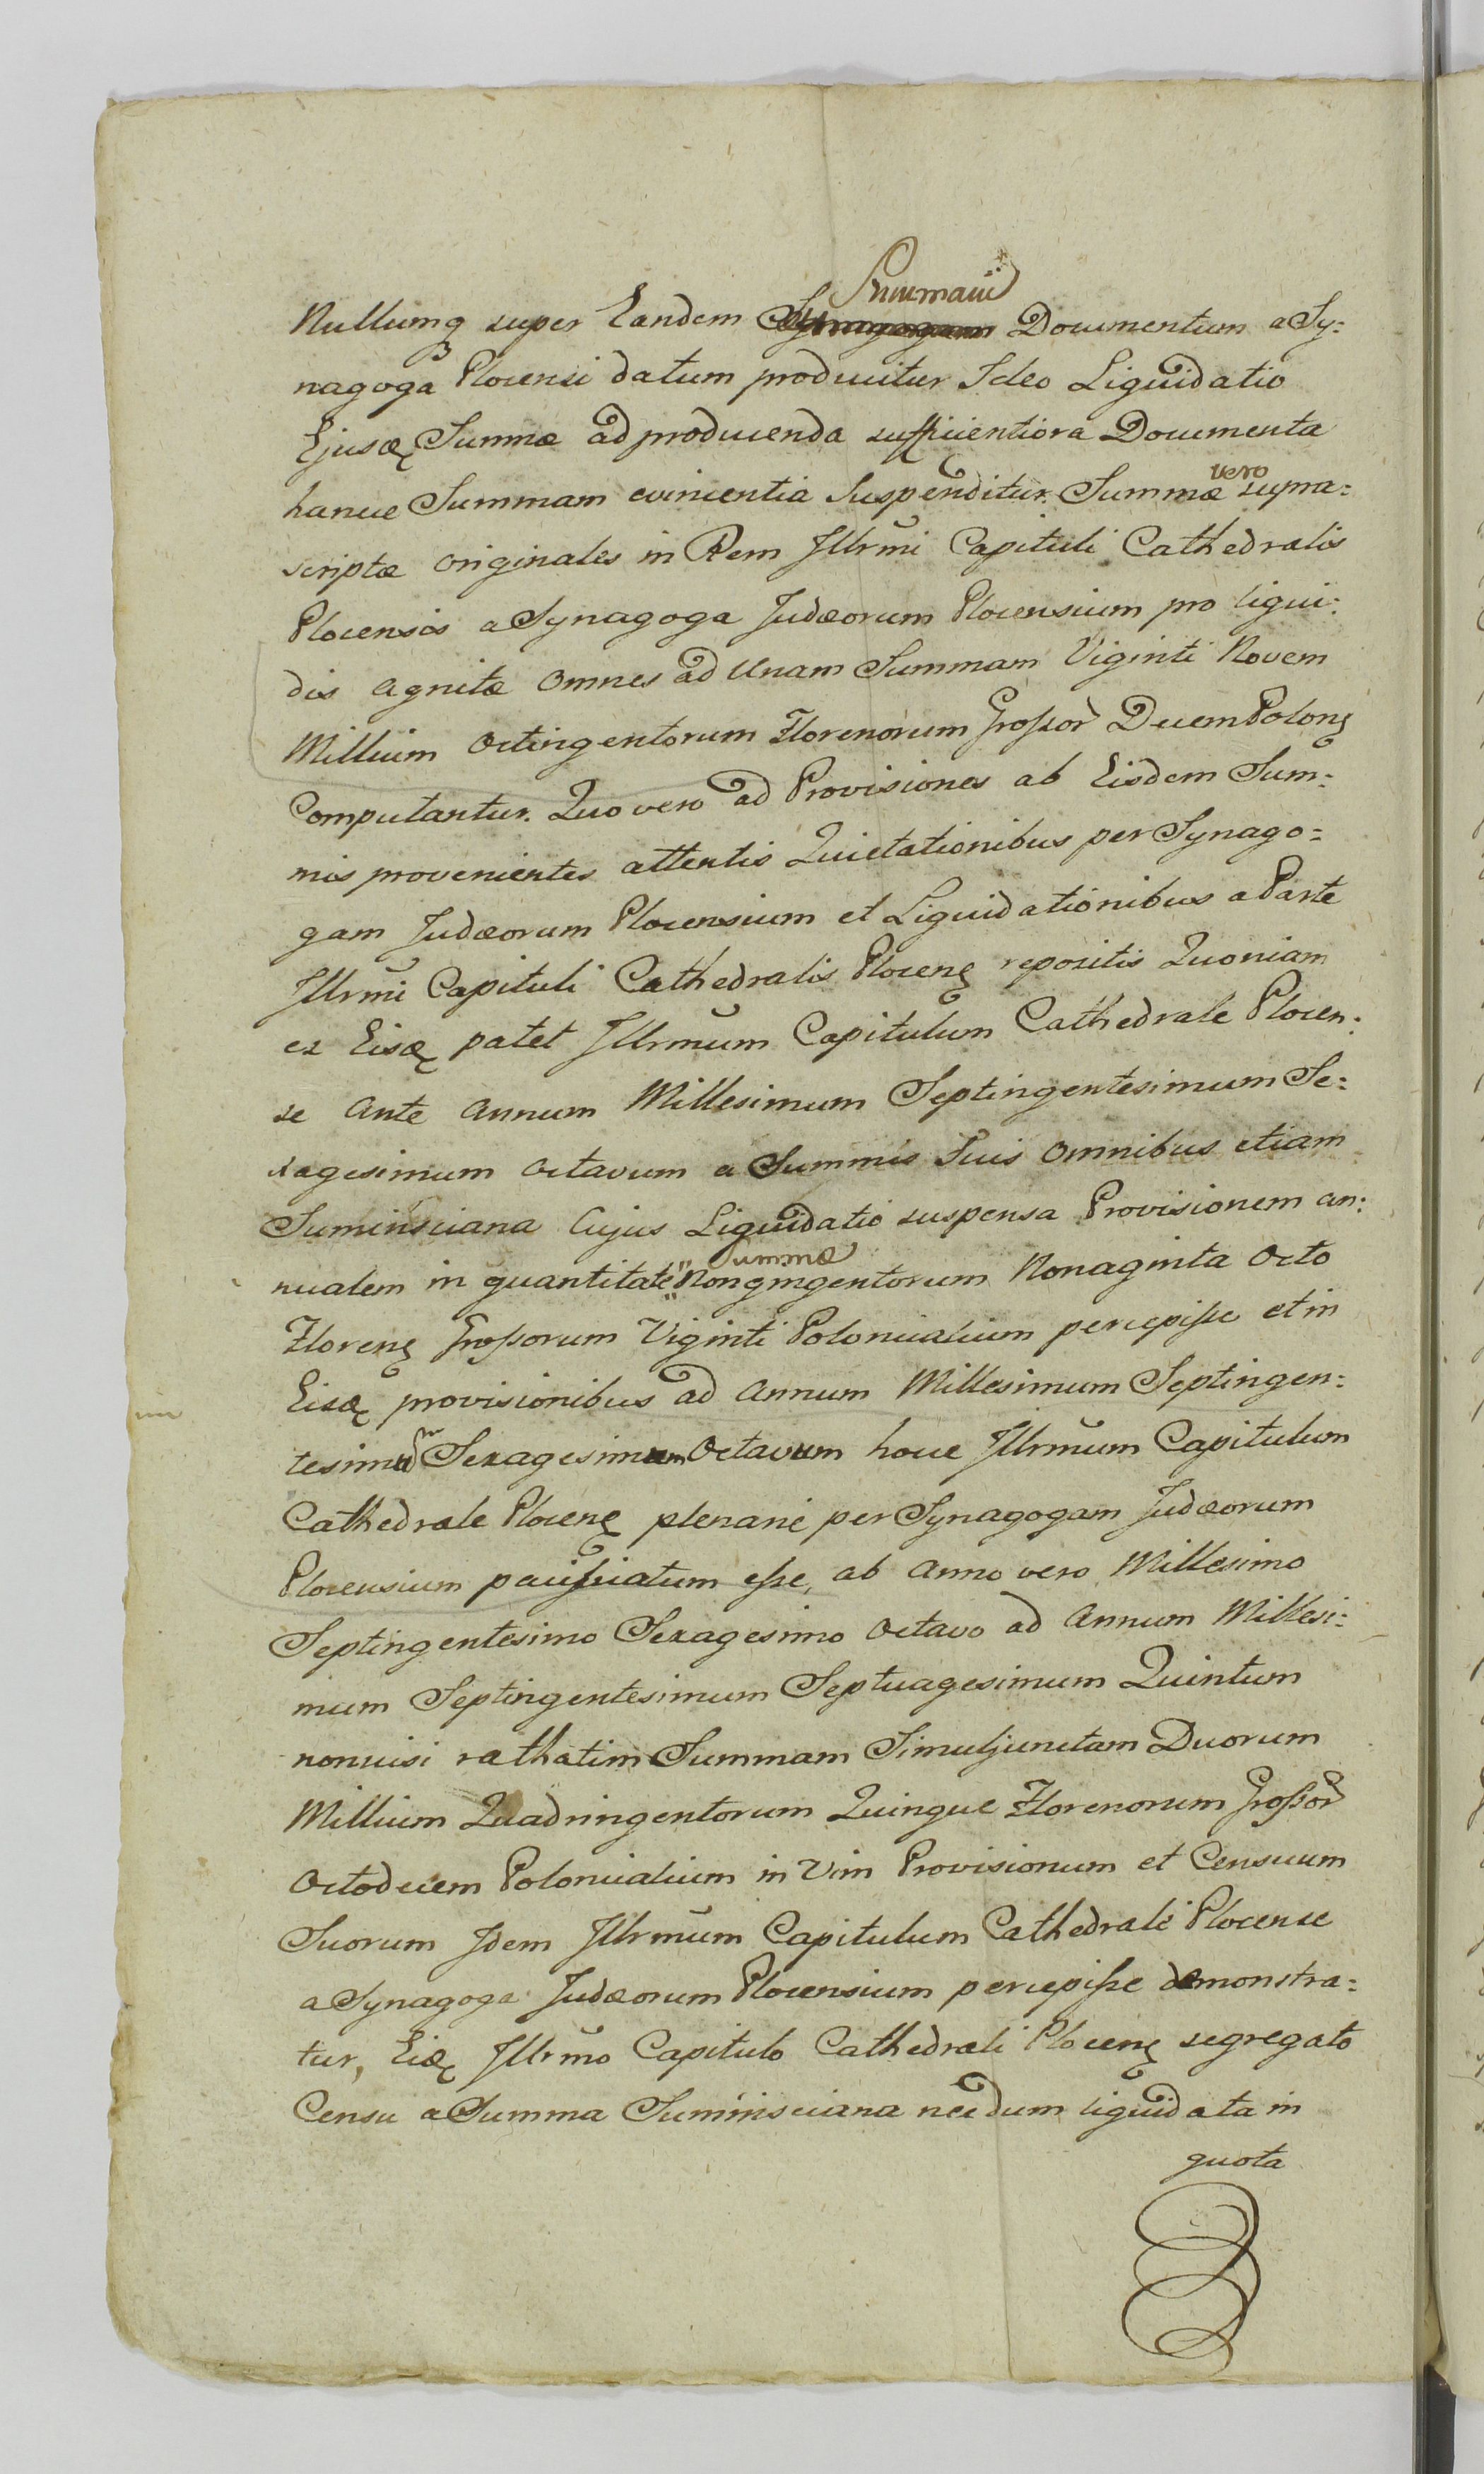 Summam
Nullumq super Eandem Synagogam Documentum a Sy:
nagoga Plocensi datum producitur Ideo Liquidatio
Ejusdę Summæ ad producenda sufficientiora Documenta
hance Summam evincentia Suspenditur. Summæ vero supra:
scriptæ originales in Rem Illrmi Capituli Cathedralis
Plocensis a Synagoga Judæorum Plocensium pro liqui:
dis agnitæ omnes ad Unam Summam Viginti Novem
Millium Octingentorum Florenorum Grossor Decem Polonę
Computantur. Quo vero ad Provisiones ab Eisdem Sum:
mis provenientes attentis Quietationibus per Synago:
gam Judæorum Plocensium et Liquidationibus a Parte
Illrmi Capituli Cathedralis Plocenę repositis Quoniam
ex Eisdę patet Illrmum Capitulum Cathedrale Plocen:
se Ante Annum Millesimum Septingentesimum Se:
xagesimum Octavum a Summis Suis Omnibus etiam
Suminsciana Cujus Liquidatio suspensa Provisionem an:
nualem in quantitate Summæ Nongingentorum Nonaginta Octo
Florenę Grossorum Viginti Polonicalium percepisse et in
Eisdę provisionibus ad Annum Millesimum Septingen:
tesimum Sexagesimum Octavum hoce Illrmum Capitulum
Cathedrale Plocenę plenarie per Synagogam Judæorum
Plocensium pacificatum esse, ab Anno vero Millesimo
Septingentesimo Sexagesimo Octavo ad Annum Millesi:
mum Septingentesimum Septuagesimum Quintum
nonnisi rathatim Summam Simuljunctam Duorum
Millium Quadringentorum Quinque Florenorum Grossor
Octodecem Polonicalium in Vim Provisionum et Censuum
Suorum Idem Illrmum Capitulum Cathedrale Plocense
a Synagoga Judæorum Plocensium percepisse demonstra:
tur, Eidę Illrmo Capitulo Cathedrali Plocenę segregato
Censu a Summa Suminsciana necdum liquidata in
quota